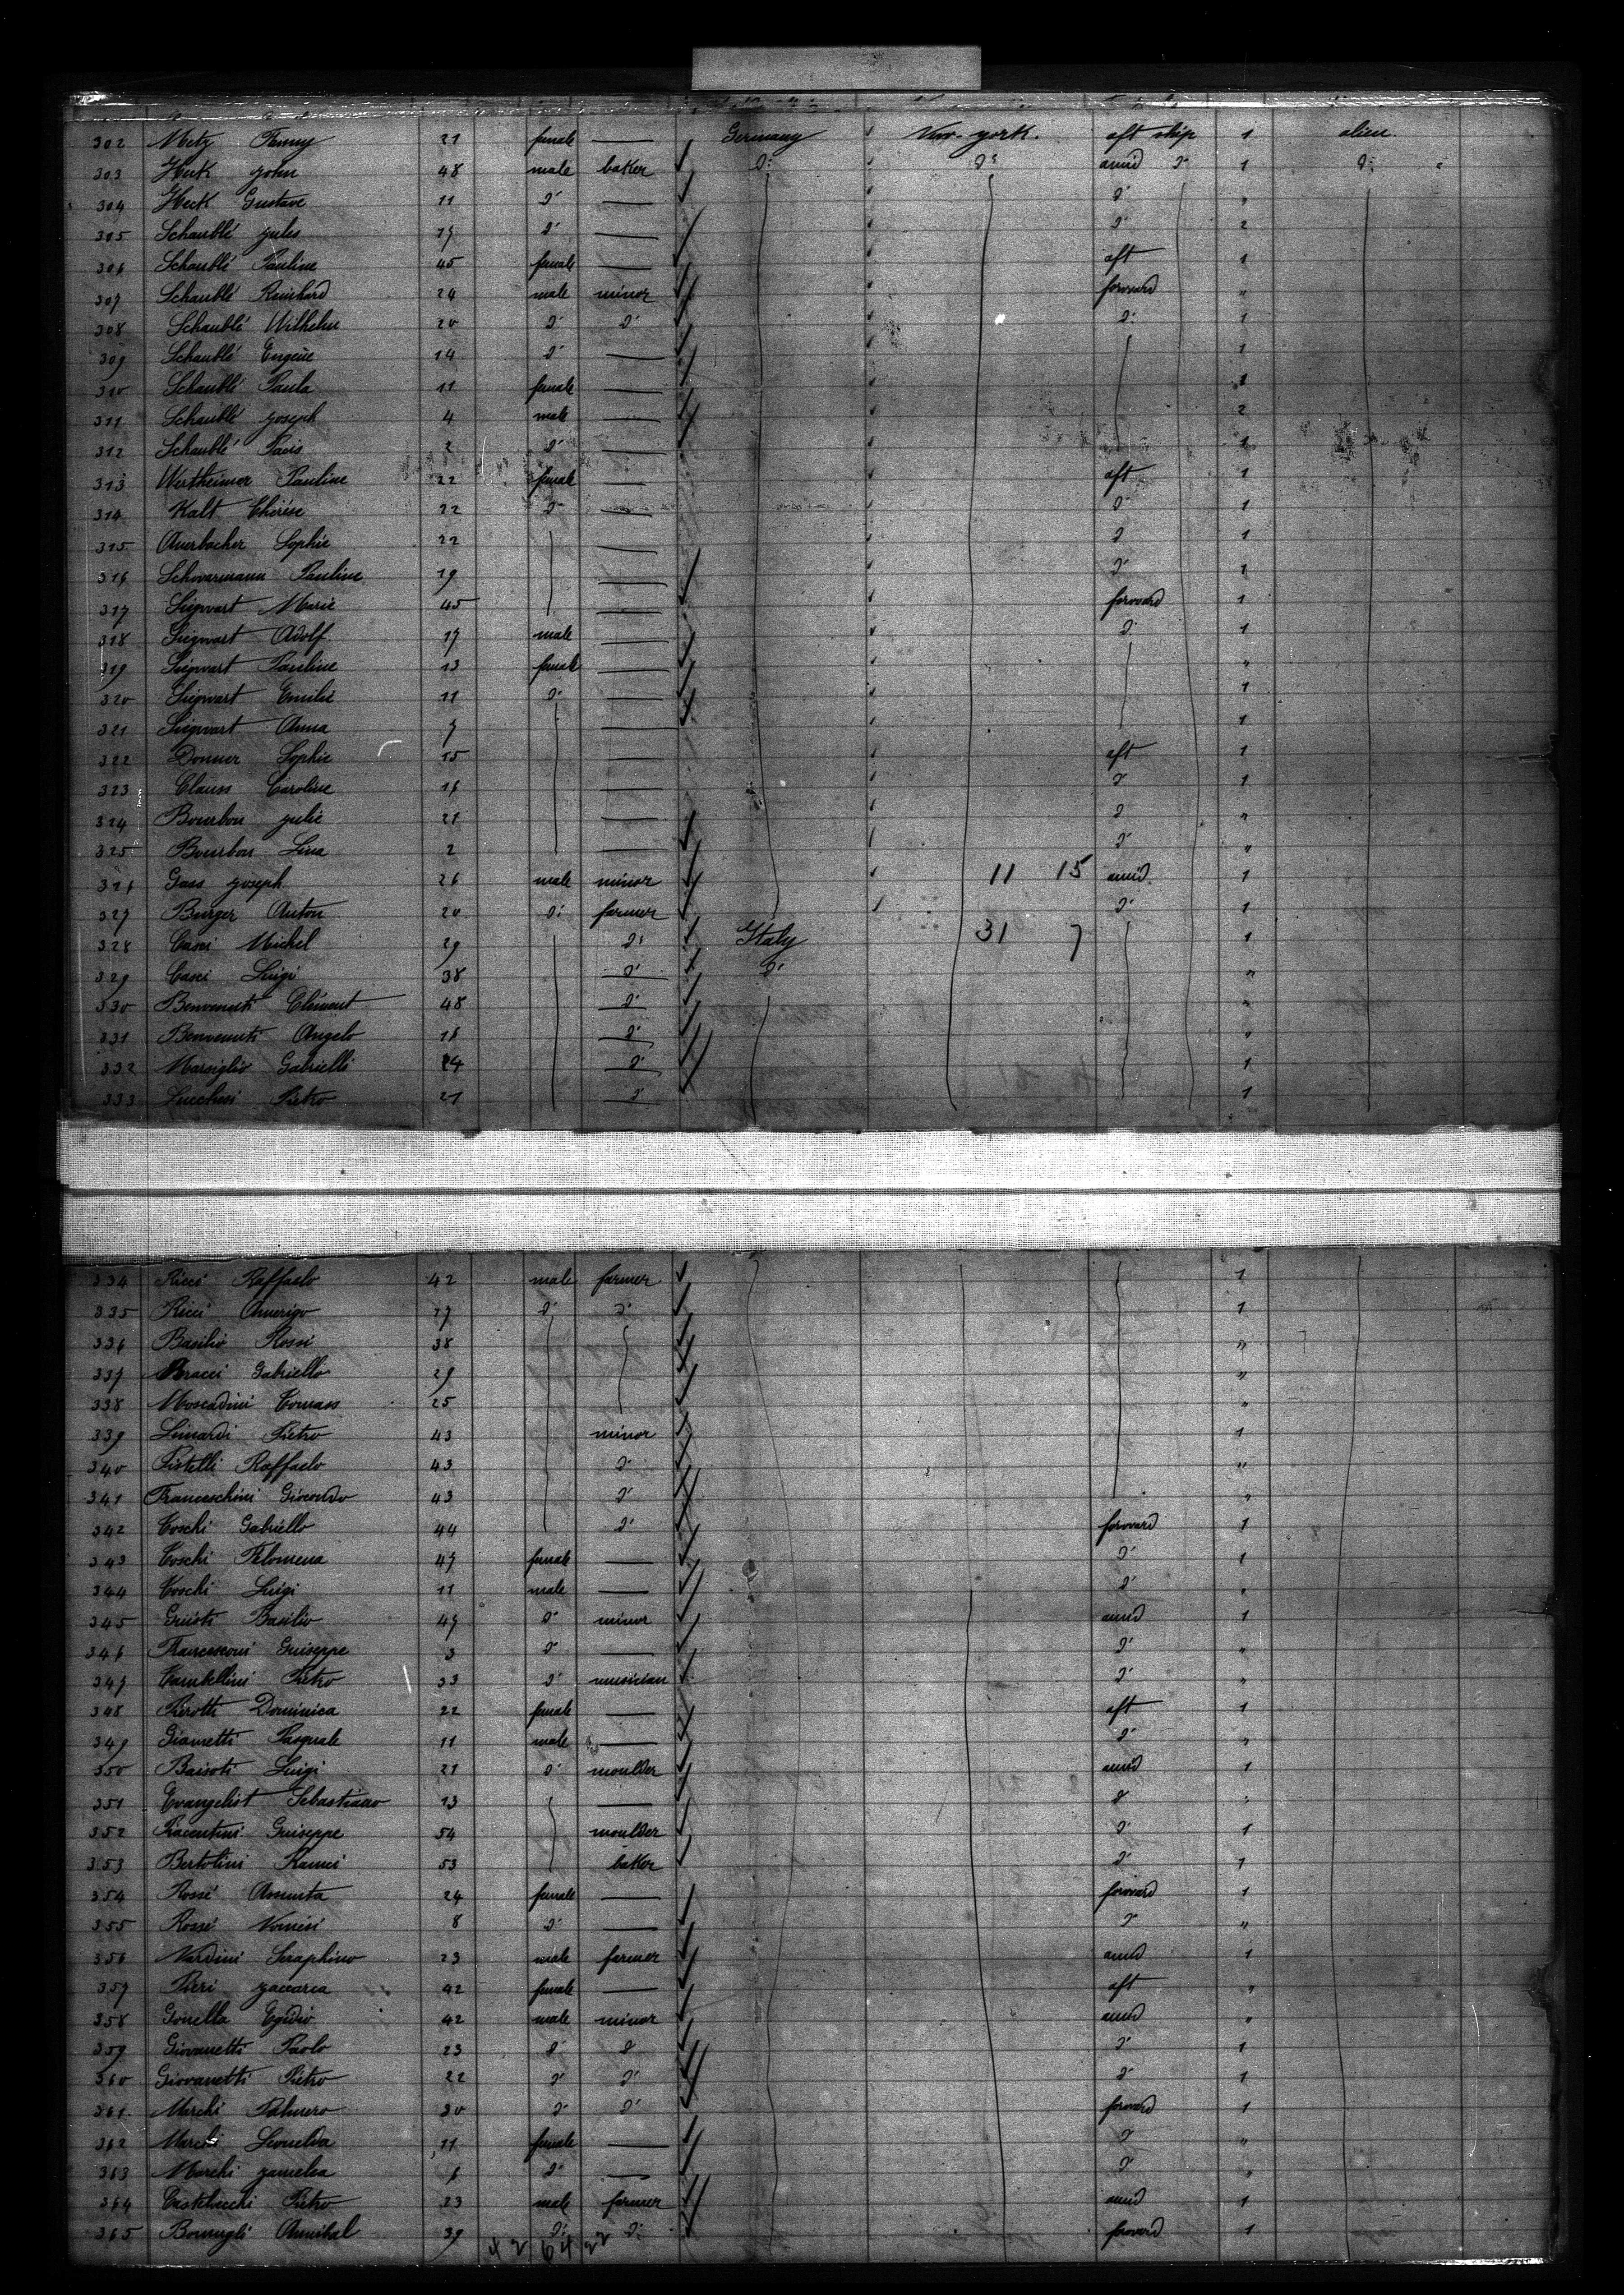 302 Metz Fanny 21 female — Germany New-york. aft ship 1 alien.
303 Heck john 48 male baker d: d: amid d: 1 d:
304 Heck Gustave 11 d: — d: "
305 Schaublé jules 17 d: — d: 2
306 Schaublé Pauline 45 female — aft 1
307 Schaublé Reinhard 24 male minor forward "
308 Schaublé Wilhelm 20 d: d: d: 1
309 Schaublé Eugène 14 d: — 1
310 Schaublé Paula 11 female — 1
311 Schaublé joseph 4 male — 2
312 Schaublé 2 d: — 1
313 Wertheimer Pauline 22 female — aft 1
314 Kalt Thérèse 22 d: — d: 1
315 Auerbacher Sophie 22 — d: 1
316 Schwarmann Pauline 19 — d: 1
317 Siegwart Marie 45 — forward 1
318 Siegwart Adolf 17 male — d: 1
319 Siegwart Pauline 13 female — "
320 Siegwart Emilie 11 d: — 1
321 Siegwart Anna 7 — 1
322 Donner Sophie 15 — aft 1
323 Clauss Caroline 16 — d: 1
324 Bourbon julie 21 — d: "
325 Bourbon Lina 2 — d: "
326 Gass joseph 26 male minor 11 15 amid 1
327 Burger Anton 20 d: farmer d: 1
328 Michel 29 d: Italy 31 7 1
329 Casci Luigi 38 d: d: "
330 Benvenuti Clément 48 d: "
331 Benvenuti Angelo 16 d: "
332 Marsiglio Gabrielli 24 d: 1
333 Lucchesi Pietro 21 d: 1
334 Ricci Raffaelo 42 male farmer 1
335 Ricci Amerigo 27 d: d: 1
336 Basilio Rossi 38 "
337 Bracci Gabriello 29 "
338 Moscadini Tomass 25 "
339 Limardi Pietro 43 minor 1
340 Pistelli Raffaelo 43 d: "
341 Franceschini Giocondo 43 d: "
342 Toschi Gabriello 44 d: forward 1
343 Toschi Filomena 47 female — d: 1
344 Toschi Luigi 11 male — d: "
345 Guisti Basilio 47 d: minor amid 1
346 Francesconi Guiseppe 3 d: — d: "
347 Cambellini Pietro 33 d: musician d: "
348 Pierotti Dominica 22 female — aft 1
349 Giametti Pasquale 11 male — d: "
350 Luigi 21 d: moulder amid 1
351 Evangelist Sebastiano 13 — d: "
352 Piacentini Guiseppe 54 moulder d: 1
353 Bertolini 53 baker d: 1
354 Rossi Assunta 24 female — forward 1
355 Rossi 8 d: — d: "
356 Nardini Seraphino 23 male farmer amid 1
357 Pieri zaccarea 42 female — aft "
358 Gonella Egidio 42 male minor amid "
359 Giovanetti Paolo 23 d: d: d: 1
360 Giovanetti Pietro 22 d: d: d: 1
361 Marchi Palmero 30 d: d: forward 1
362 Marchi 11 female — d: "
363 Marchi 6 d: — d: "
364 Castelvecchi Pietro 23 male farmer amid 1
365 Annibal 39 d: d: forward 1
42 64 22